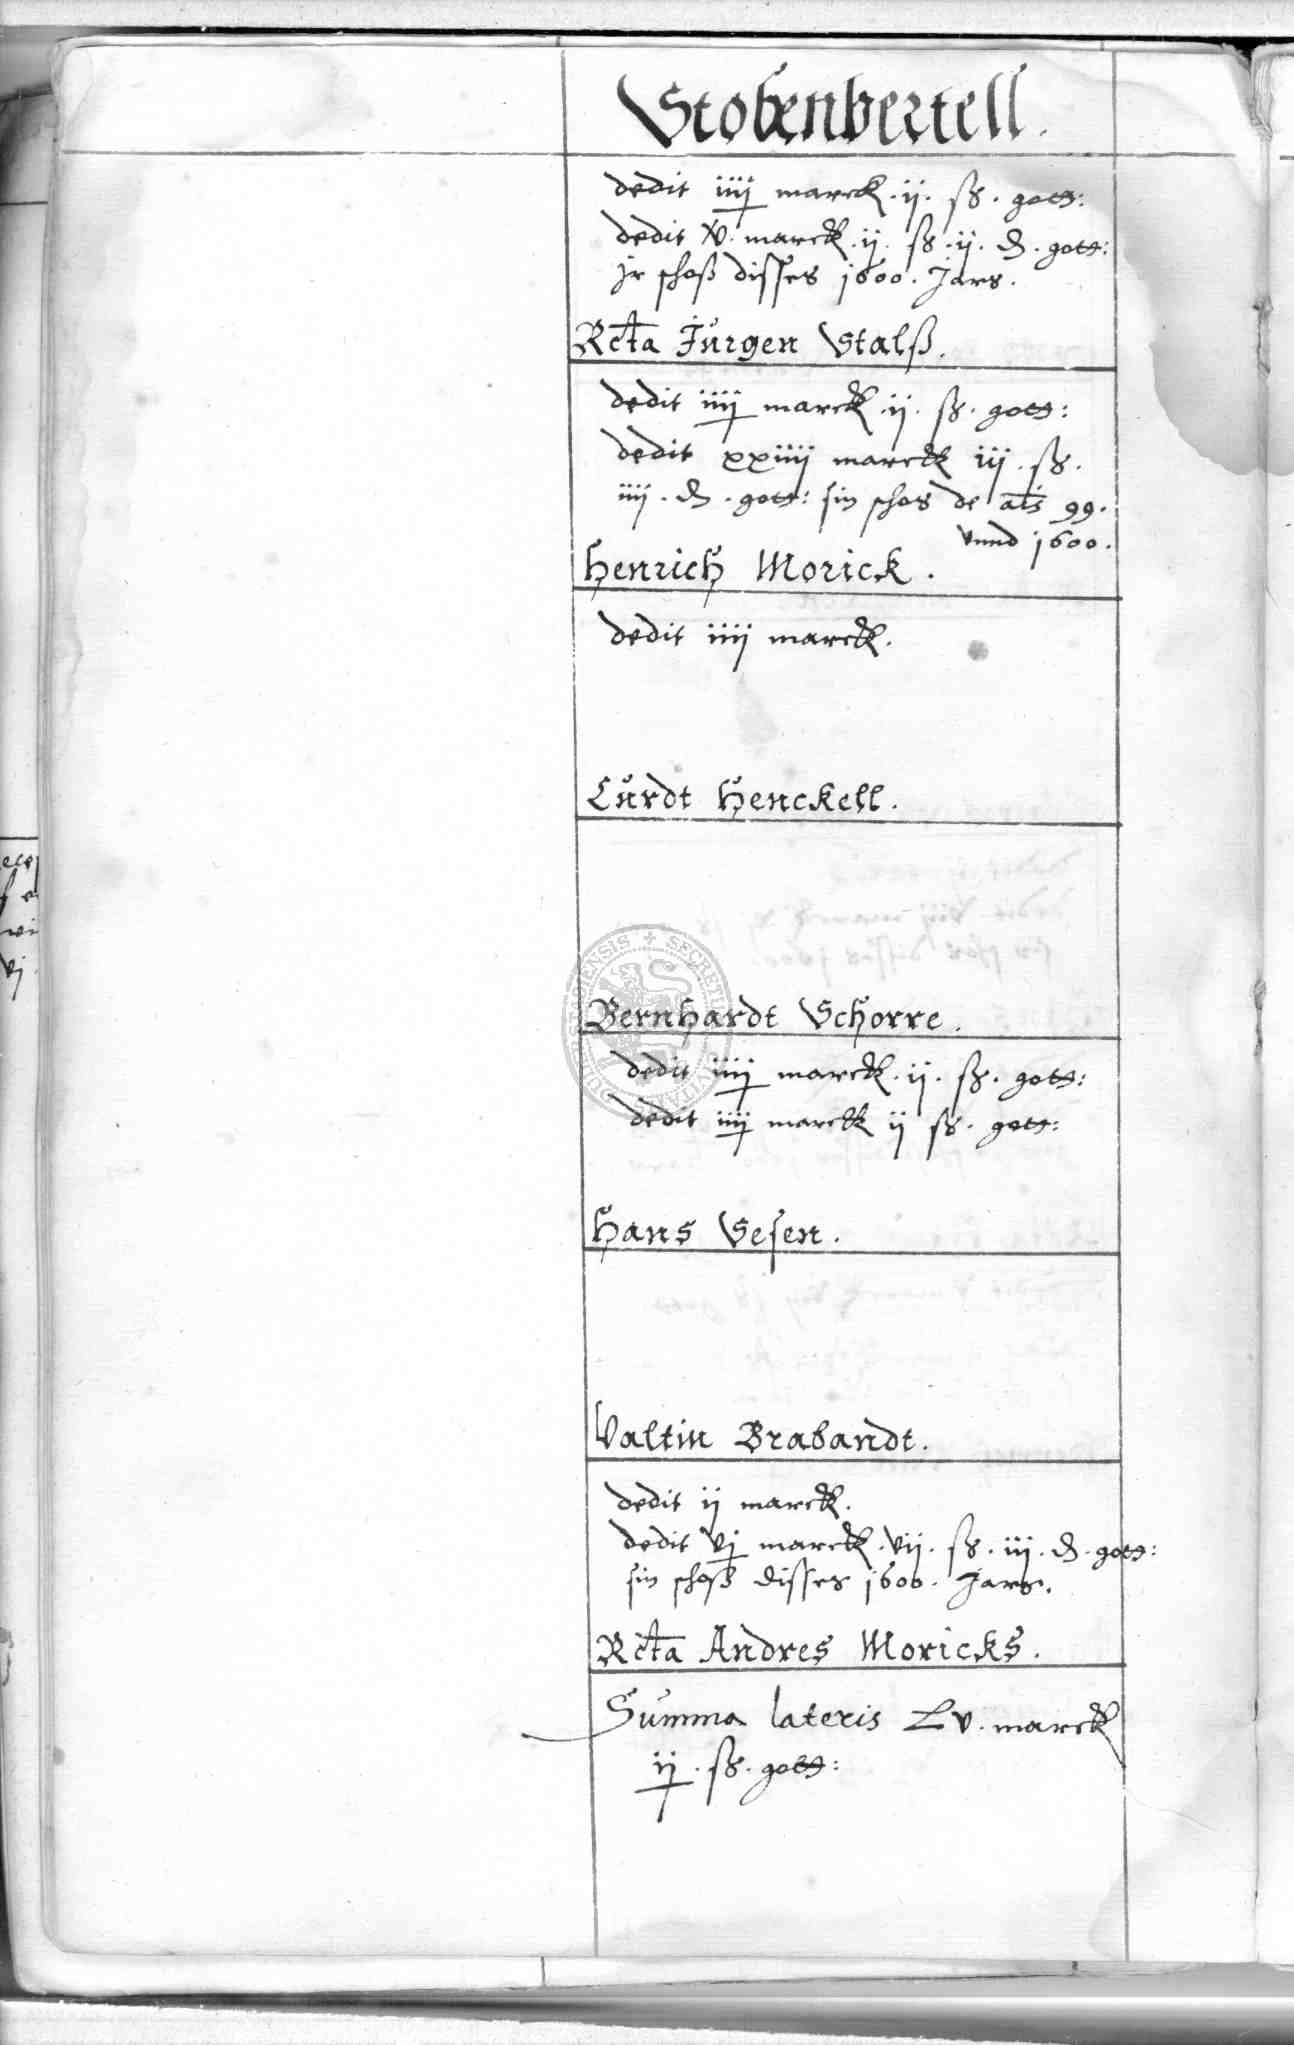 Stobenbertell.
dedit iiij marck. ij. ß. gotts:
dedit v. marck. ij. ß. ij. ₰. gotts:
jr schoß disses 1600. Jars.
Rcta Jürgen Stalß.
dedit iiij marck. ij. ß. gotts:
dedit xxiiij marck iij. ß.
iiij. ₰. gotts: sin schos de ais 99.
vnnd 1600.
Henrich Morick.
dedit iiij marck.
Curdt Henckell.
Bernhardt Schorre.
dedit iiij marck. ij. ß. gotts:
dedit iiij marck ij ß. gotts:
Hans Sesen.
Valtin Brabandt.
dedit ij marck.
dedit vj marck. vij. ß. iij. ₰. gotts:
sin schoß disses 1600. Jars.
Rcta Andres Moricks.
Summa lateris Lv. marck
ij. ß. gotts: